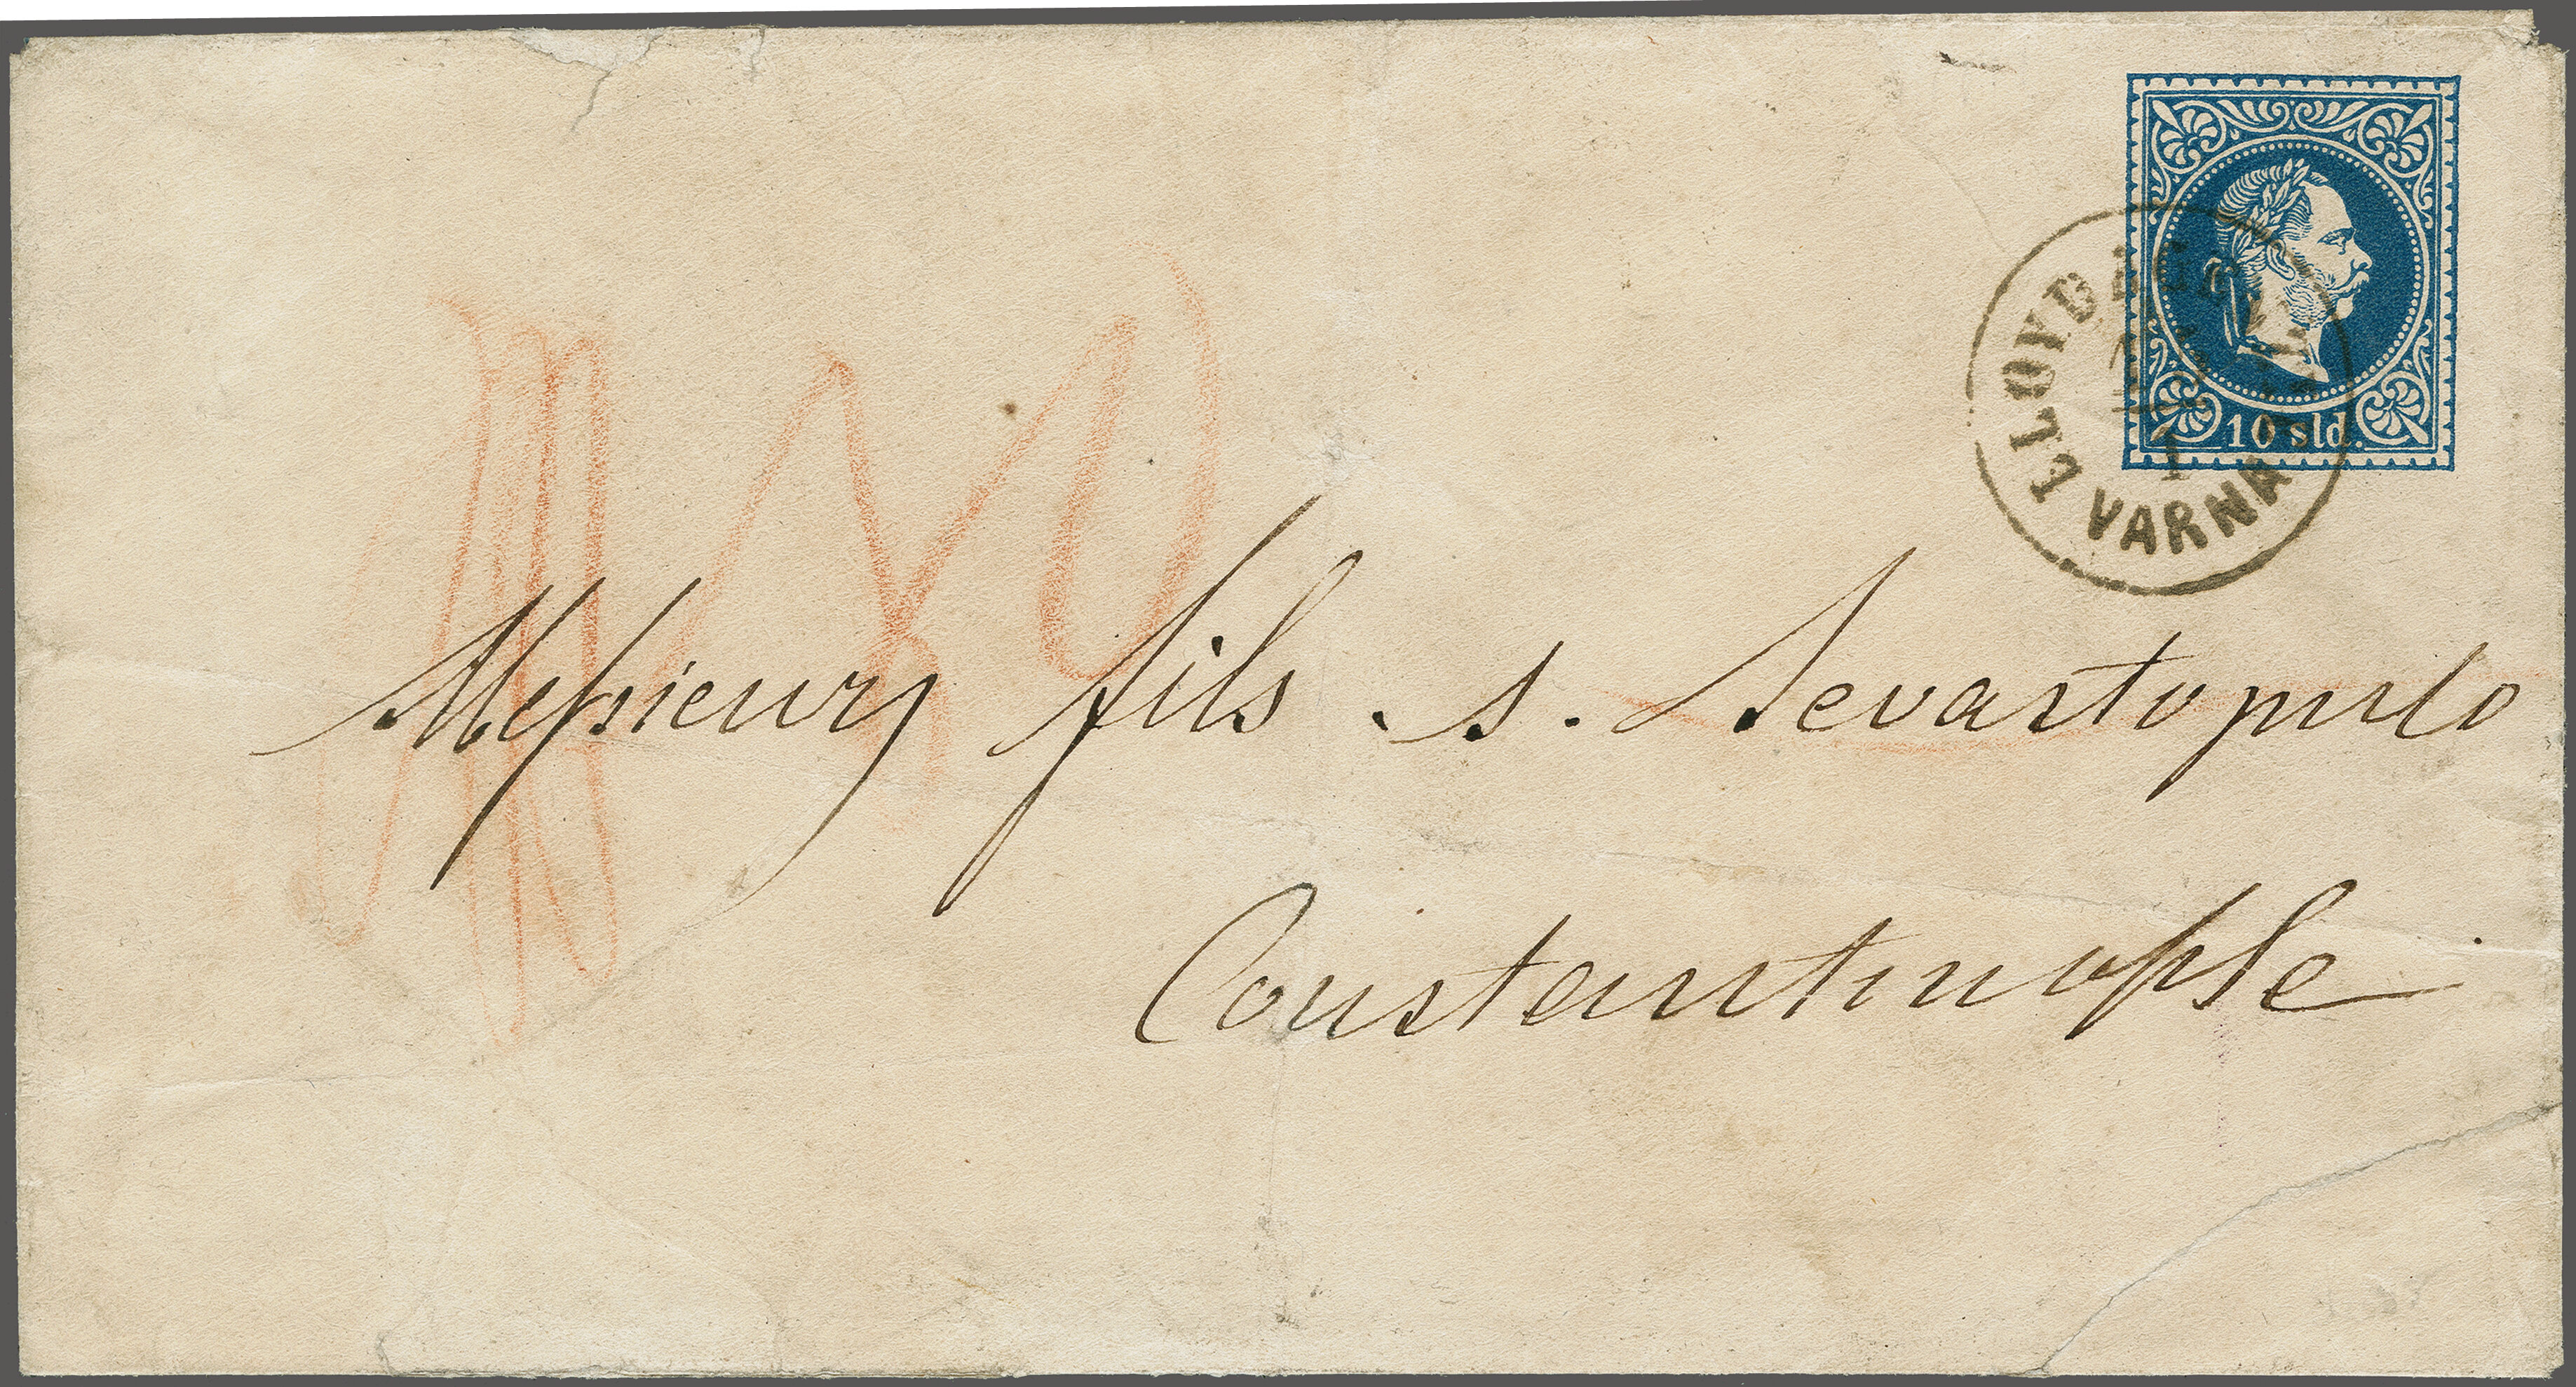 10 sld.
LLOYDAGENZIE
VARNA
Messieurs fils . s. Sevastopulo
Constantinople